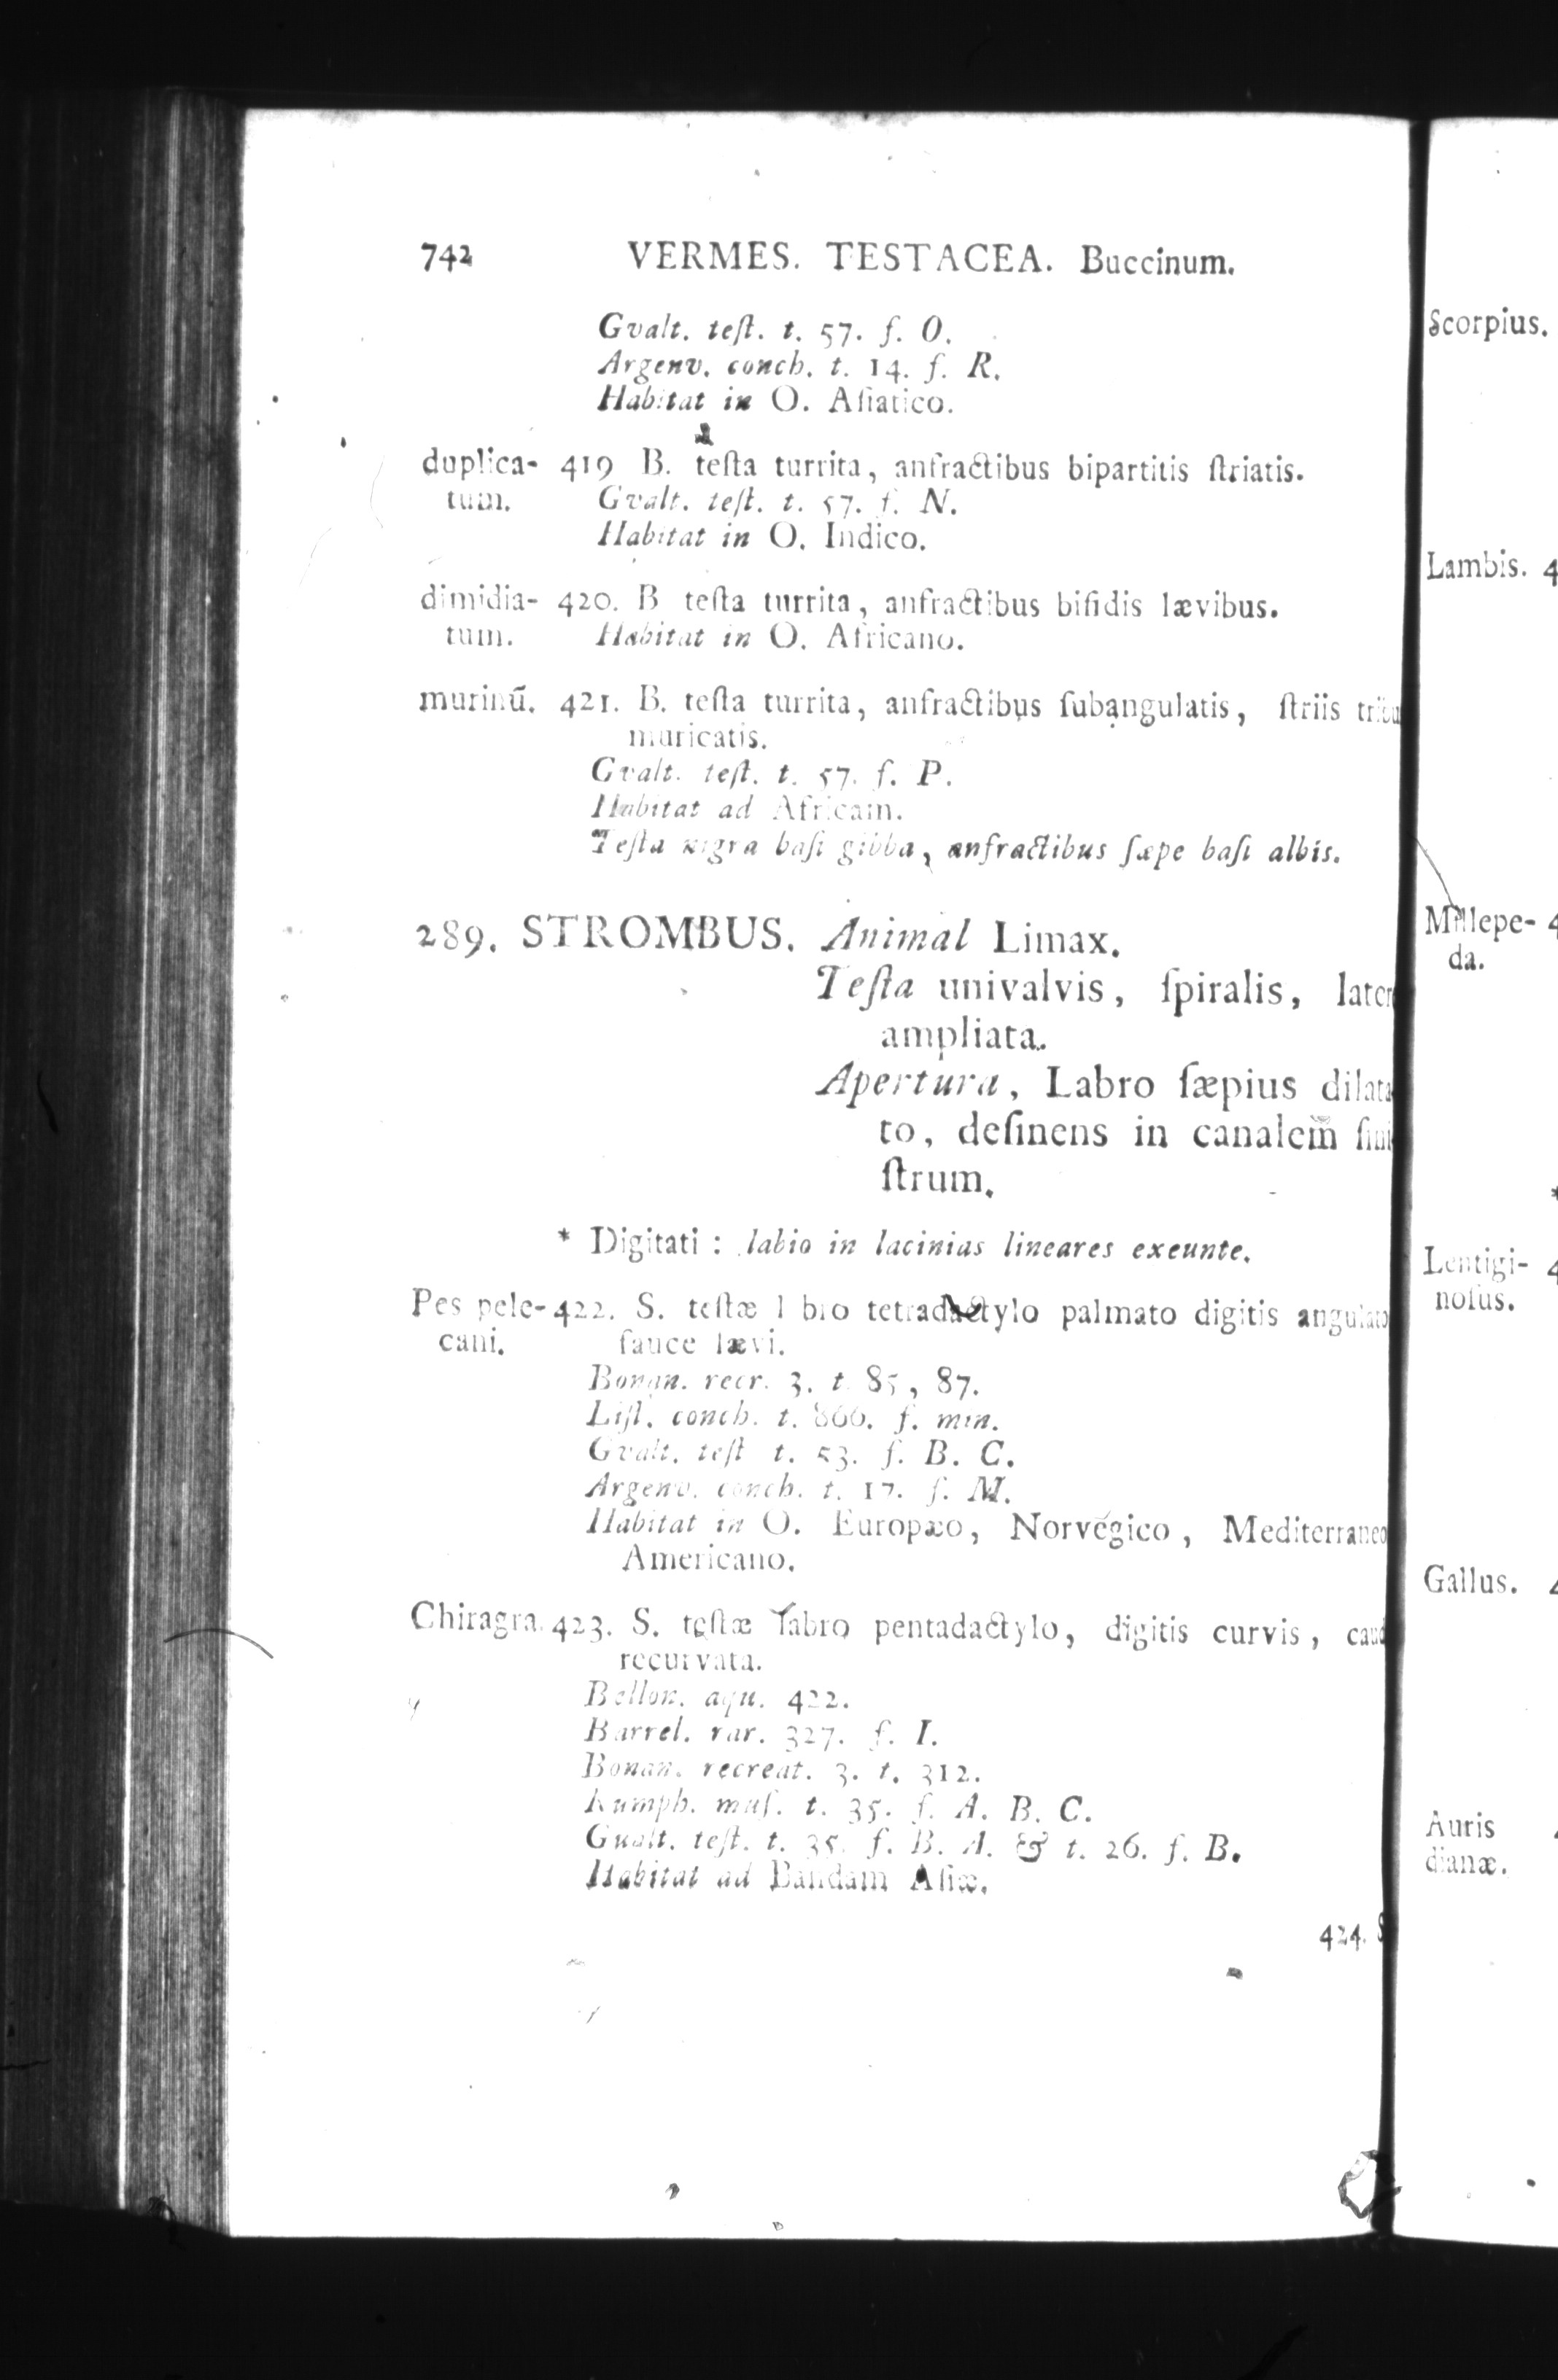 742 VERMES. TESTACEA. Buccinum.
Gvalt. teſt. t. 57. f. O.
Argenv. conch. t. 14. f. R.
Habitat in O. Aſiatico.
duplica- 419 B. teſta turrita, anfractibus bipartitis ſtriatis.
tum. Gvalt. teſt. t. 57. f. N.
Habitat in O. Indico.
dimidia- 420. B teſta turrita, anfractibus bifidis lævibus.
tum. Habitat in O. Africano.
murinū. 421. B. teſta turrita, anfractibus ſubangulatis, ſtriis tribu
muricatis.
Gvalt. teſt. t. 57. f. P.
Habitat ad Africam.
Teſta nigra baſi gibba, anfractibus ſæpe baſi albis.
289. STROMBUS. Animal Limax.
Teſta univalvis, ſpiralis, later
ampliata.
Apertura, Labro ſæpius dilata
to, deſinens in canalem ſini
ſtrum.
* Digitati: labio in lacinias lineares exeunte.
Pes pele- 422. S. teſtæ l bio tetradactylo palmato digitis angulato
cani. fauce lævi.
Bonan. recr. 3. t 85, 87.
Liſt. conch. t. 866. f. min.
Gvalt. teſt t. 53. f. B. C.
Argenv. conch. t. 17. f. M.
Habitat in O. Europæo, Norvegico, Mediterraneo
Americano.
Chiragra. 423. S. teſtæ labro pentadactylo, digitis curvis, caud
recurvata.
Bellon. aqu. 422.
Barrel. rar. 327. f. I.
Bonan. recreat. 3. t. 312.
Rumph. muſ. t. 35. f. A. B. C.
Gualt. teſt. t. 35. f. B. A. & t. 26. f. B.
Habitat ad Bandam Aſiæ.
424. S
Scorpius.
Lambis. 4
Millepe- 4
da.
*
Lentigi- 4
noſus.
Gallus. 4
Auris
dianæ.